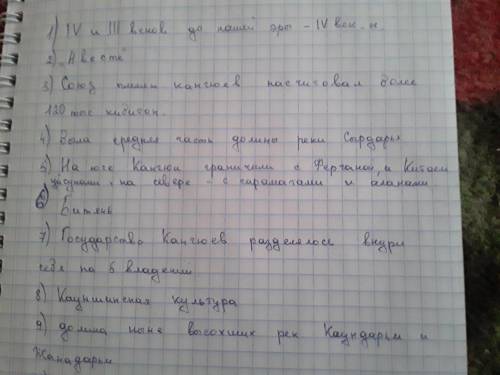 1) IV и III веков до нашей эры - IV век. н.
2) „Авесте"
3) Союз племен кангюев насчитовал более
120 тыс кибиток.
4) Была средняя часть долины реки Сырдарьи
5) На юге Кангюи граничили с Ферганой, и Китаем
уйсунами, на севере - с сарматами и аланами
6) Битянь
7) Государство Кангюев разделялось внутри
себя на 5 владений
8) Кауншинская культура
9) долина ныне высохших рек Каундарьи и
Жанадарьи